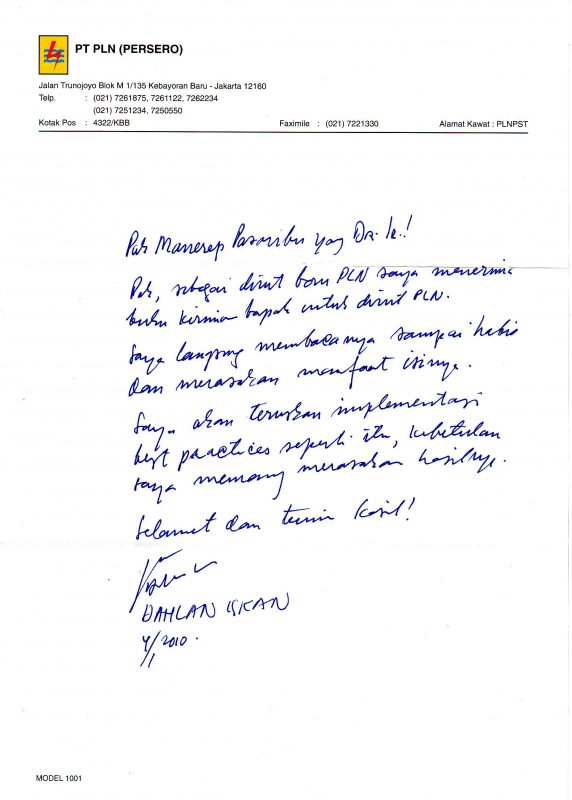 PT PLN (PERSERO)
Jalan Trunojoyo Blok M 1/135 Kebayoran Baru - Jakarta 12160
Telp. : (021) 7261875, 7261122, 7262234
(021) 7251234, 7250550
Kotak Pos : 4322/KBB Faximile : (021) 7221330 Alamat Kawat : PLNPST
Pak Manerep Pasaribu yang Dr. Ir.!
Pak, sebagai dirut baru PLN saya menerima
buku kiriman bapak untuk dirut PLN.
Saya langsung membacanya sampai habis
dan merasakan manfaat isinya.
Saya akan teruskan implementasi
best practices seperti itu, kebetulan
saya memang merasakan hasilnya.
Selamat dan terima kasih!
DAHLAN ISKAN
4/1 2010.
MODEL 1001